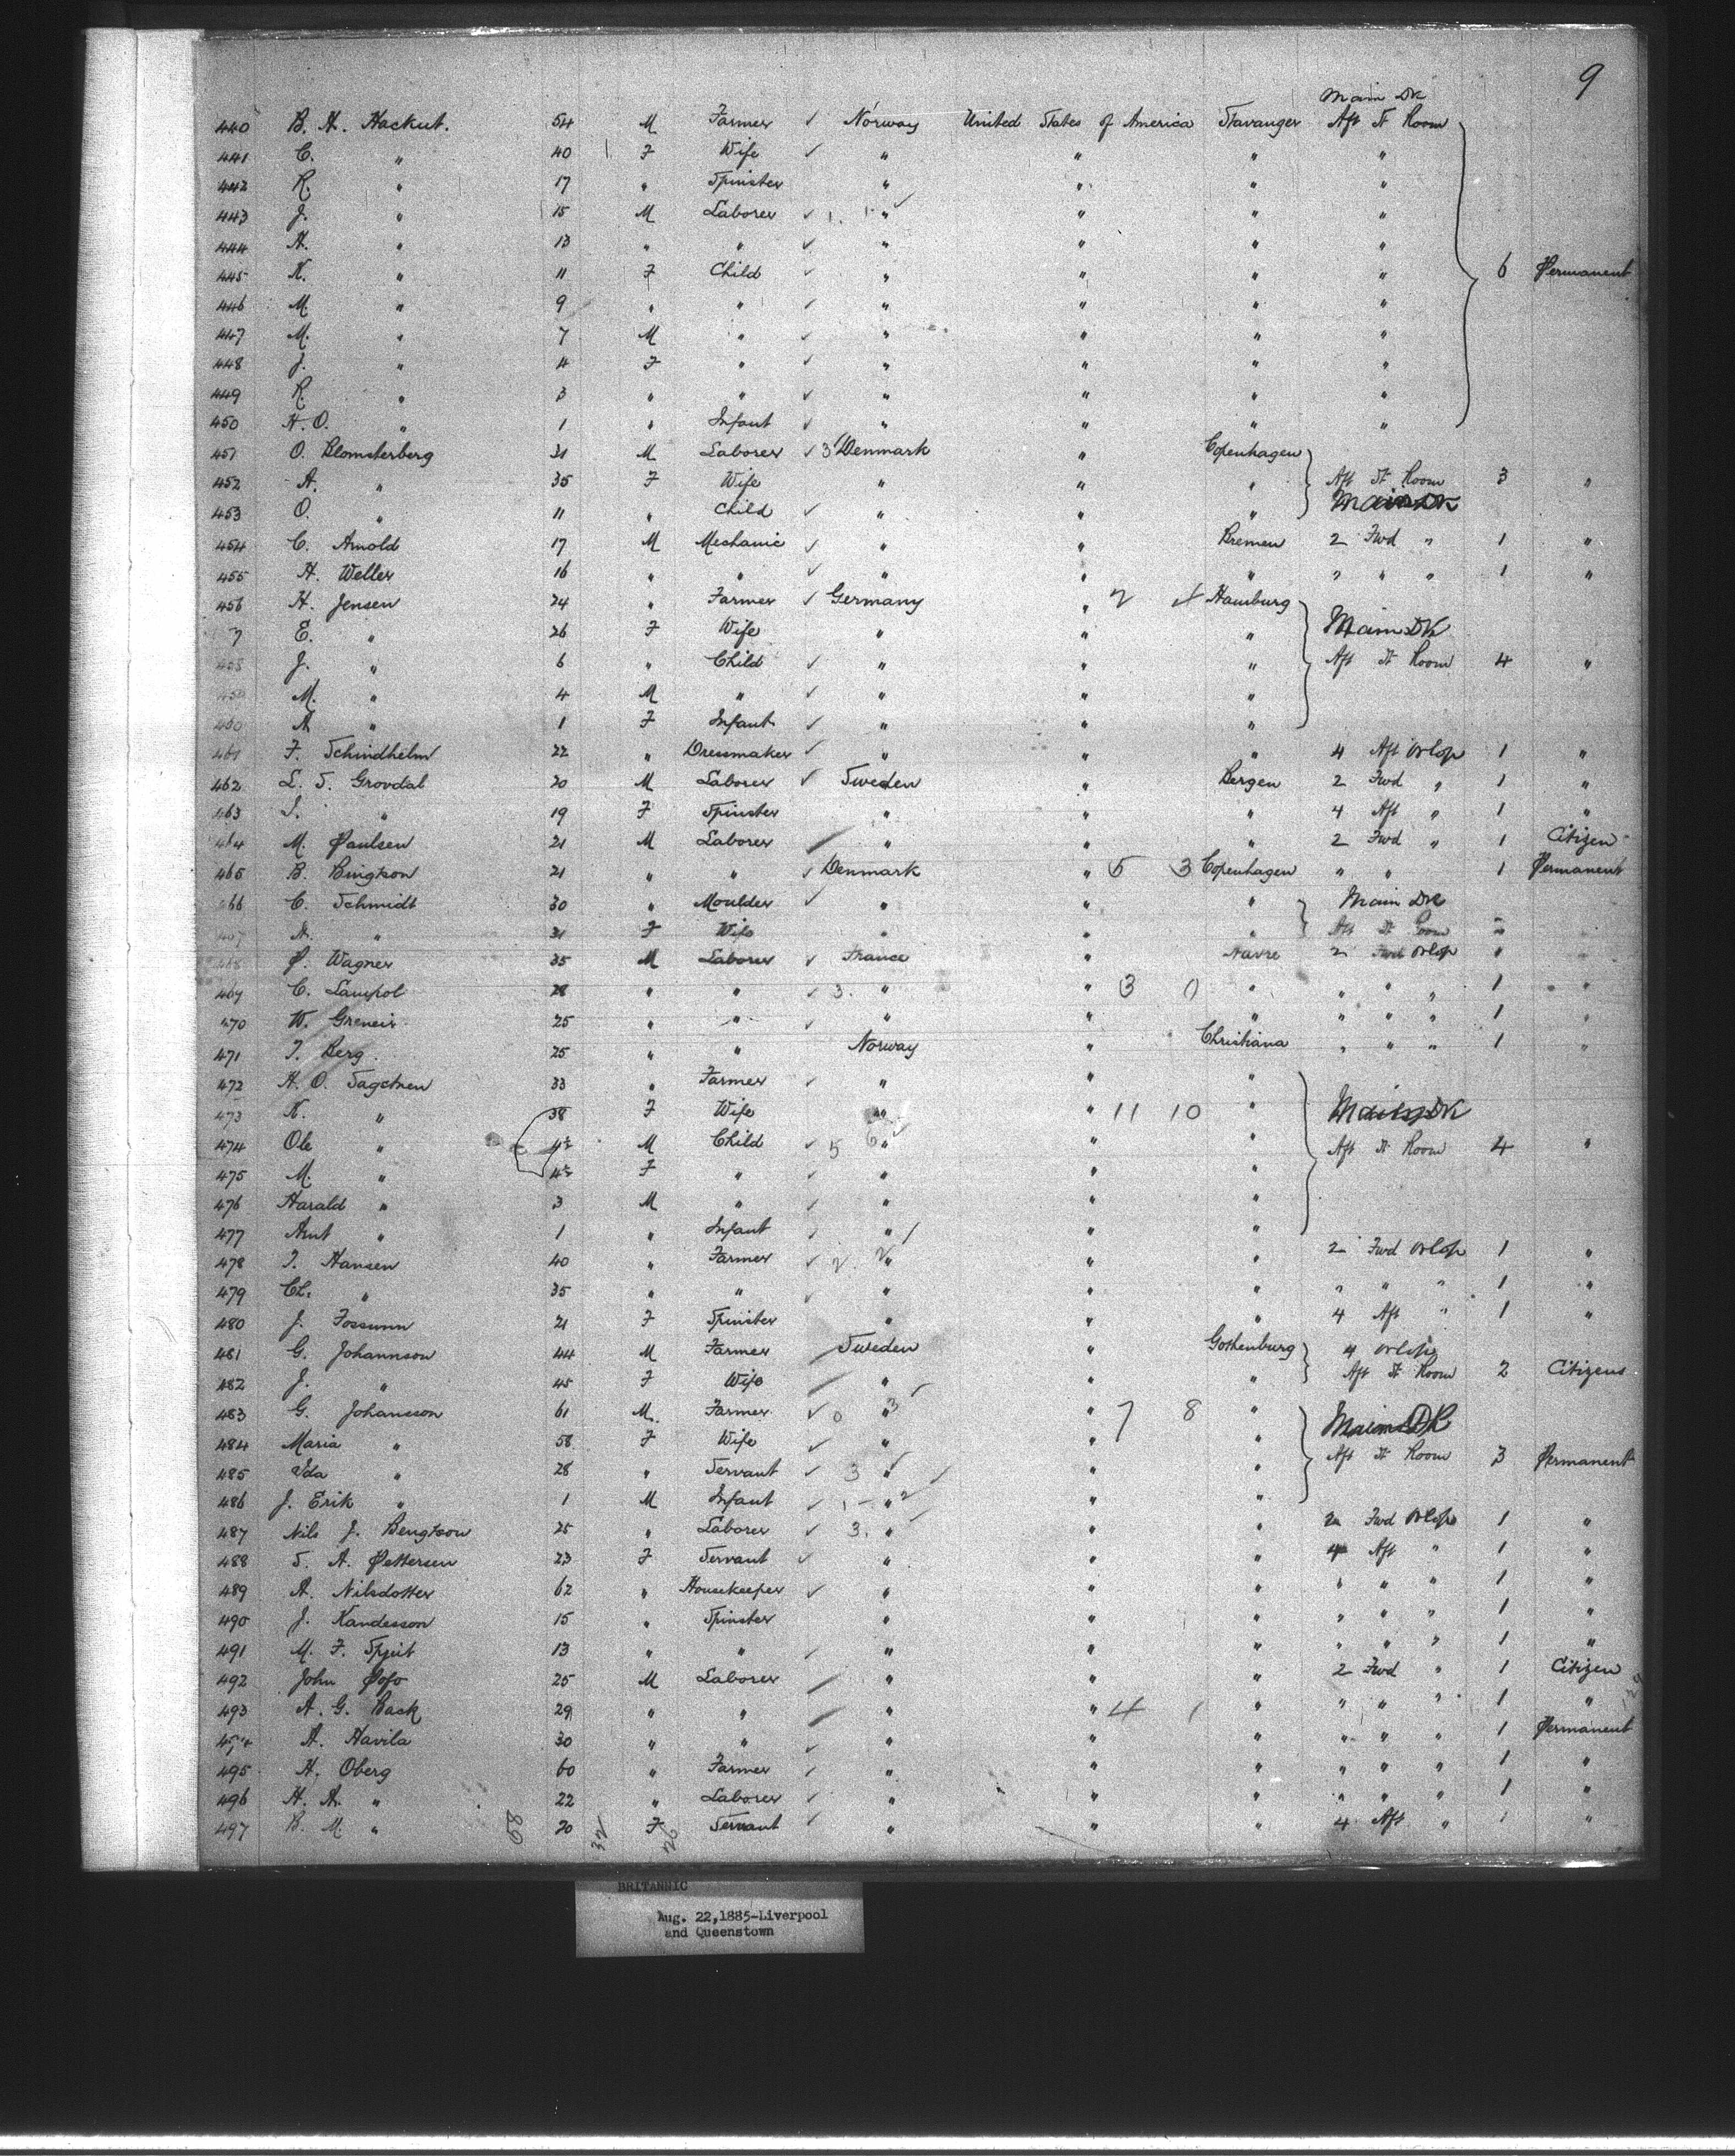 9
Main Dk
440 B. H. Hackut. 54 M Farmer ✓ Norway United States of America Stavanger Aft St Room
441 C. " 40 F Wife ✓ " " " "
442 R. " 17 " Spinster " " " "
443 J. " 15 M Laborer ✓ " " " "
444 A. " 13 " " ✓ " " " "
445 K. " 11 F Child ✓ " " " " 6 Permanent
446 M. " 9 " " ✓ " " " "
447 M. " 7 M " ✓ " " " "
448 J. " 4 F " ✓ " " " "
449 R. " 3 " " ✓ " " " "
450 H. O. " 1 " Infant ✓ " " " "
451 O. Blomsterberg 31 M Laborer ✓ 3 Denmark " Copenhagen
452 A. " 35 F Wife " " " Aft St Room 3 "
453 O. " 11 " Child ✓ " " " Main Dk
454 C. Arnold 17 M Mechanic ✓ " " Bremen 2 Fwd " 1 "
455 H. Weller 16 " " ✓ " " " " " " 1 "
456 H. Jensen 24 " Farmer ✓ Germany " Hamburg
7 E. " 26 F Wife " " " Main Dk
458 J. " 6 " Child ✓ " " " Aft St Room 4 "
459 M. " 4 M " ✓ " " "
460 A. " 1 F Infant ✓ " " "
461 F. Schindhelm 22 " Dressmaker ✓ " " " 4 Aft Orlop 1 "
462 L. S. Grovdal 20 M Laborer ✓ Sweden " Bergen 2 Fwd " 1 "
463 S. " 19 F Spinster " " " 4 Aft " 1 "
464 M. Paulsen 21 M Laborer " " " 2 Fwd " 1 Citizen
465 B. Bingtson 21 " " ✓ Denmark " 5 3 Copenhagen " " 1 Permanent
466 C. Schmidt 30 " Moulder ✓ " " " Main Dk
467 A. " 31 F Wife " " " Aft St Room
468 P. Wagner 35 M Laborer ✓ France " Havre 2 Fwd Orlop " "
469 C. Lampol 28 " " ✓ 3. " " 3 0 " " " " 1 "
470 W. Greneir 25 " " ✓ " " " " " " 1 "
471 T. Berg 25 " " Norway " Christiana " " " 1 "
472 H. O. Tagetnen 33 " Farmer ✓ " " "
473 K. " 38 F Wife " " 11 10 " Main Dk
474 Ole " 4½ M Child ✓ 5 6 " " " Aft St Room 4 "
475 M. " 4½ F " ✓ " " "
476 Harald " 3 M " ✓ " " "
477 Arnt " 1 " Infant ✓ " " "
478 T. Hansen 40 " Farmer ✓ 2. 2 " " " 2 Fwd Orlop 1 "
479 Ch. " 35 " " ✓ " " " " " " 1 "
480 J. Fossumn 21 F Spinster " " " 4 Aft " 1 "
481 G. Johannson 44 M Farmer Sweden " Gothenburg 4 Orlop
482 J. " 45 F Wife " " " Aft St Room 2 Citizens
483 G. Johansson 61 M. Farmer ✓ 0 " 3 " 7 8 " Main Dk
484 Maria " 58 F Wife ✓ " " " Aft St Room 3 Permanent
485 Ida " 28 " Servant ✓ 3 " " "
486 J. Erik " 1 M Infant ✓ 1 - " 2 " "
487 Nils J. Bengtson 25 " Laborer ✓ 3. " " " 2 Fwd Orlop 1 "
488 S. A. Pettersen 23 F Servant ✓ " " " 4 Aft " 1 "
489 A. Nilsdotter 62 " Housekeeper ✓ " " " " " " 1 "
490 J. Kandesson 15 " Spinster " " " " " " 1 "
491 M. F. Spjut 13 " " ✓ " " " " " " 1 "
492 John 25 M Laborer " " " 2 Fwd " 1 Citizen
493 A. G. Back 29 " " " " 4 1 " " " " 1 "
494 A. Havila 30 " " ✓ " " " " " " 1 Permanent
495 H. Oberg 60 " Farmer ✓ " " " " " " 1 "
496 H. A. " 22 " Laborer ✓ " " " " " " 1 "
497 B. M. " 20 F Servant ✓ " " " 4 Aft " 1 "
32 26
BRITANNIC
Aug. 22,1885-Liverpool
and Queenstown